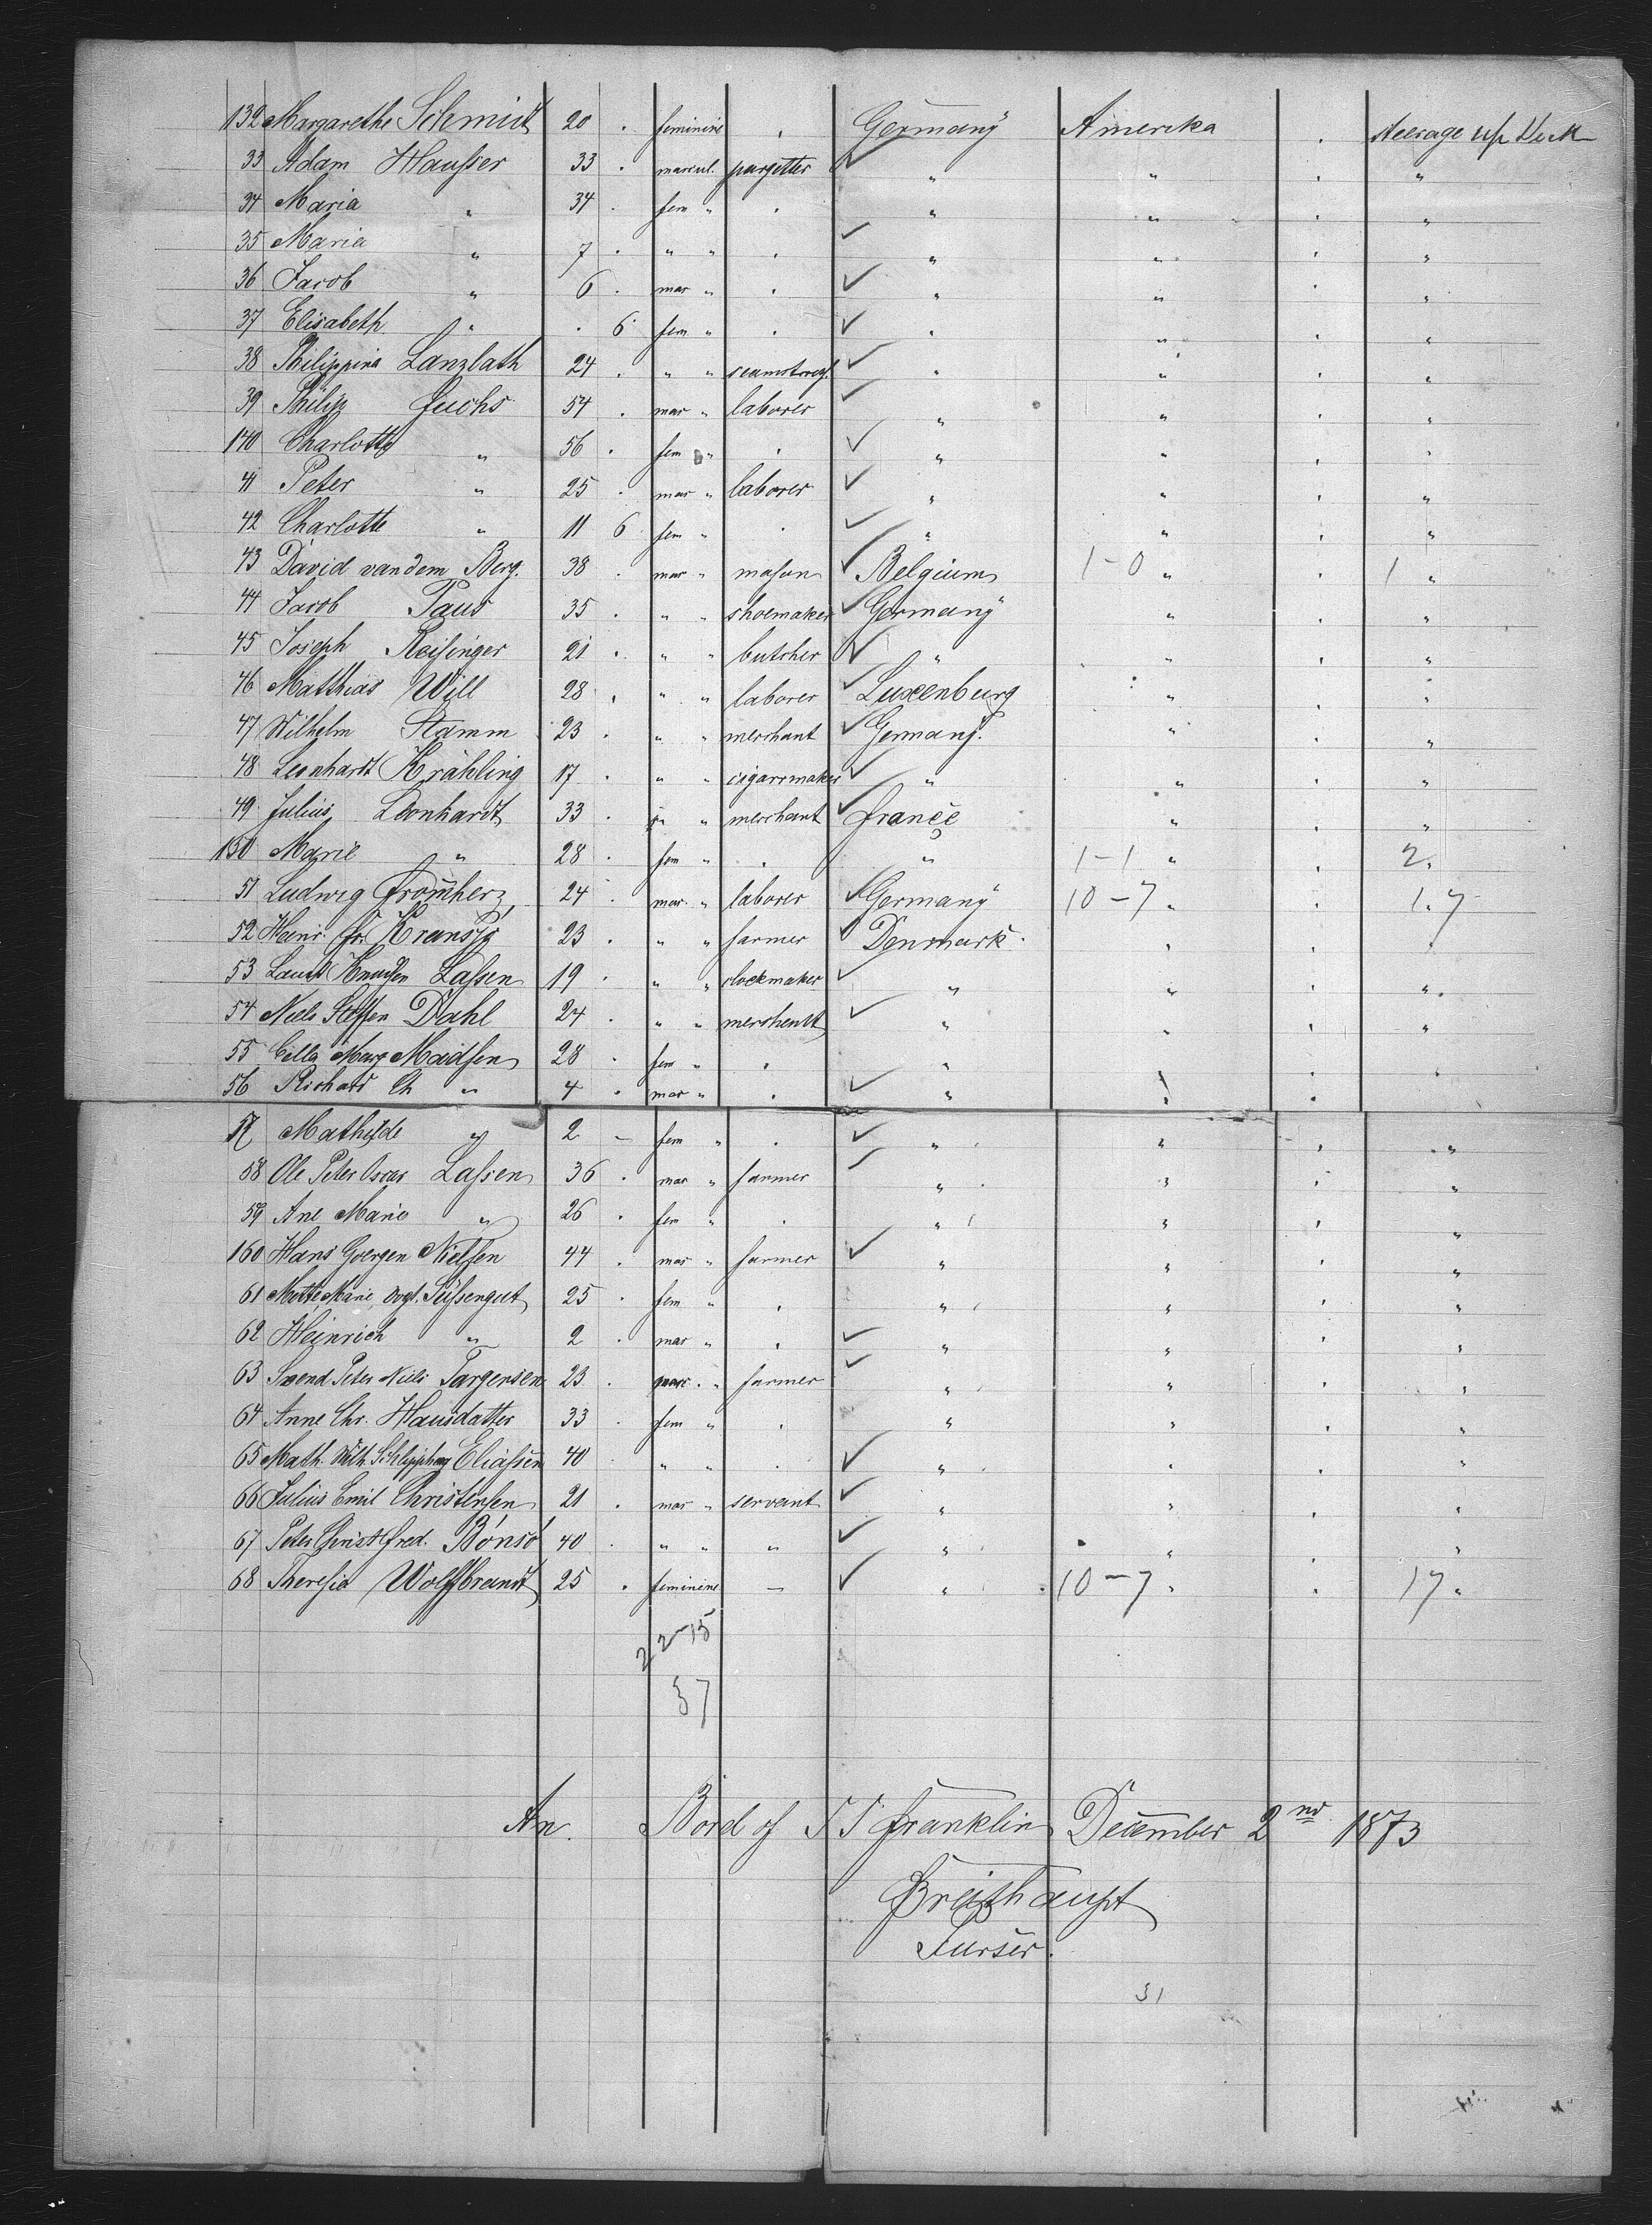 132 Margarethe Schmidt 20 . feminine . Germany Amerika . steerage up Deck
33 Adam Hausser 33 . mascul. pargetter " " . "
34 Maria " 34 . fem " . " " . "
35 Maria " 7 . " " . " " . "
36 Jacob " 6 . mas " . " " . "
37 Elisabeth " . 6 fem " . " " . "
38 Philippina Lanzlath 24 . " " seamstress. " " . "
39 Philip Fuchs 54 . mas " laborer " " . "
140 Charlotte " 56 . fem " . " " . "
41 Peter " 25 . mas " laborer " " . "
42 Charlotte " 11 6 fem " . " " . "
43 David van dem Berg. 38 . mas " mason Belgium 1-0 " . 1 "
44 Jacob Paus 35 . " " shoemaker Germany " . "
45 Joseph Reisinger 21 . " " butcher " " . "
46 Matthias Will 28 . " " laborer Luxenburg " . "
47 Wilhelm Stamm 23 . " " merchant Germany. " . "
48 Leonhardt Krähling 17 . " " cigarrmaker " " . "
49 Julius Leonhardt 33 . " " merchant France " . "
150 Marie " 28 . fem " . " 1-1 " . 2 "
51 Ludwig Fromherz 24 . mas. " laborer Germany 10-7 " . 17
52 Heinr. Fr. 23 . " " farmer Denmark. " . "
53 Knudsen Lassen 19 . " " clockmaker " " . "
54 Niels Steffen Dahl 24 . " " merchant " " . "
55 Cilla Marg Madsen 28 . fem " . " " . "
56 Richard Ch " 4 . mas " . " " . "
57 Mathilde " 2 - fem " . " " . "
58 Ole Peter Oscar Lassen 36 . mas " farmer " " . "
59 Ane Marie " 26 . fem " . " " . "
160 Hans Goergen Nielsen 44 . mas " farmer " " . "
61 Mette Marie Süssengut 25 . fem " . " " . "
62 Heinrich " 2 . mas " . " " . "
63 Svend Peter Niels Targersen 23 . masc. " farmer " " . "
64 Anne Chr. Hansdatter 33 . fem " . " " . "
65 Math. Wilh. Eliassen 40 . " " . " " . "
66 Julius Emil Christensen 21 . mas " servant " " . "
67 Peter Christ Fred. Bönsö 40 . " " " " " . "
68 Theresia Wolffbrandt 25 . feminine - " 10-7 " . 17 "
22-15
37
An. Bord of SS Franklin December 2nd 1873
Breithaupt
Purser.
31